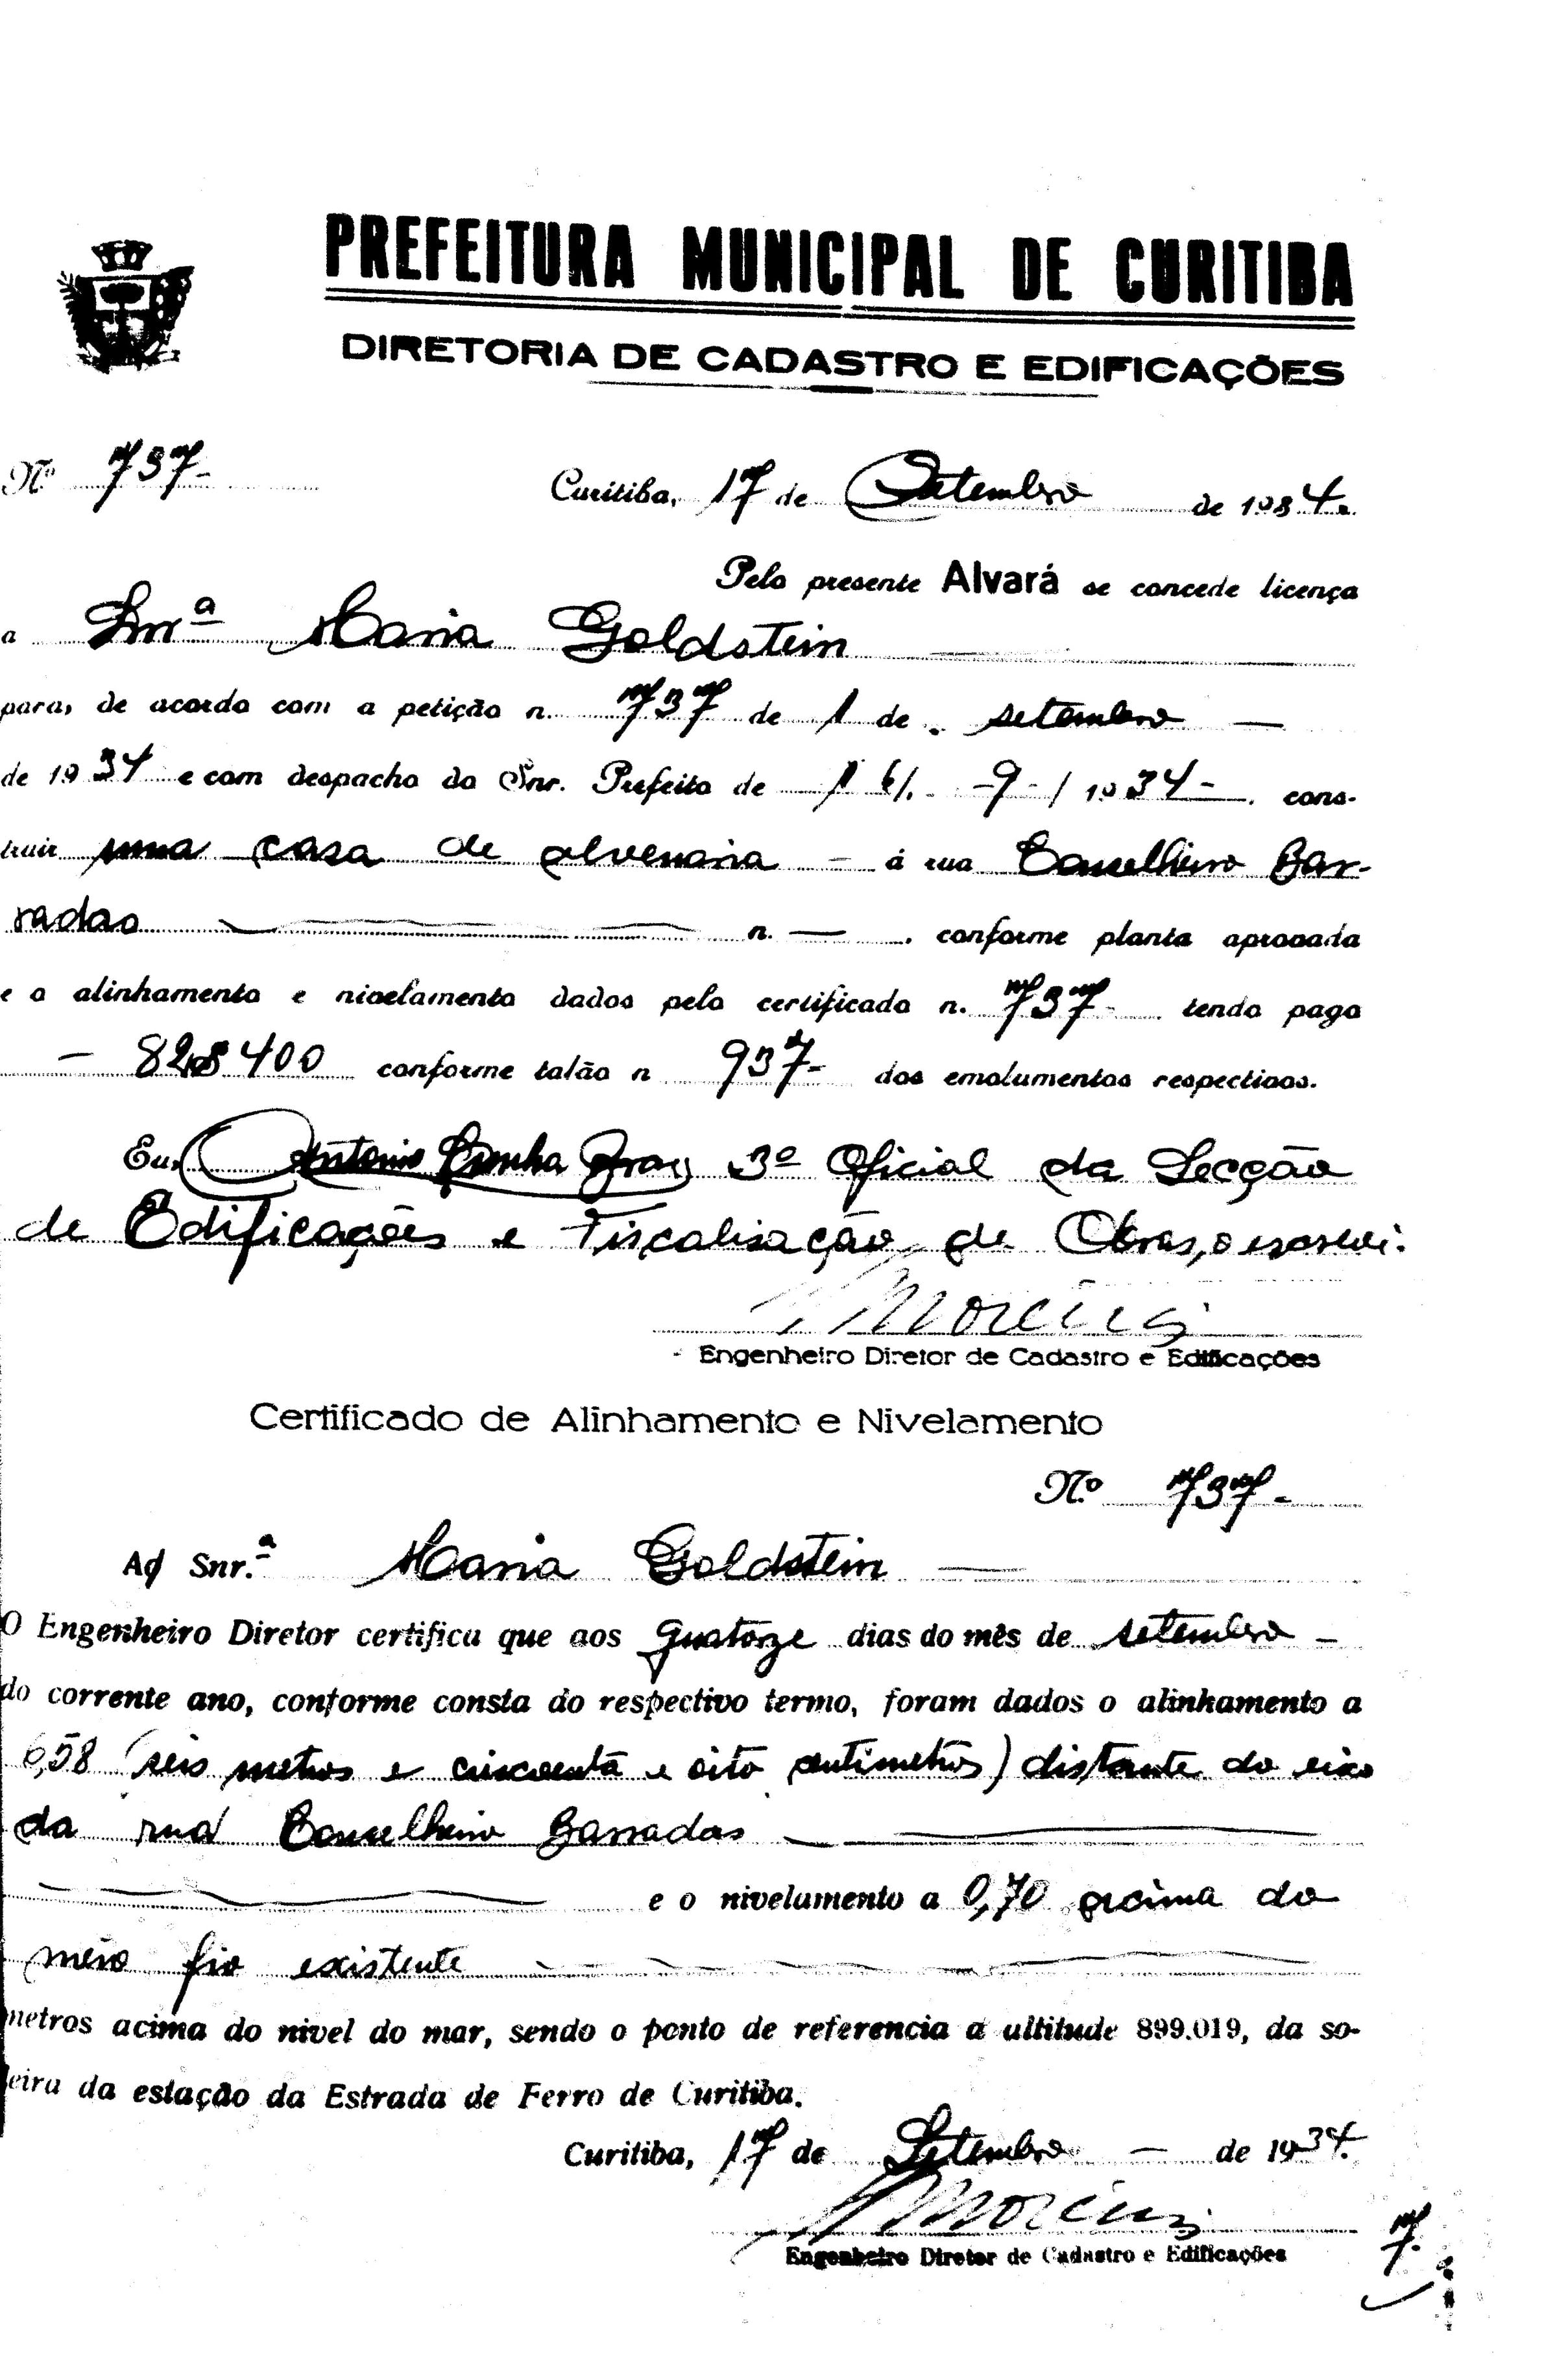 PREFEITURA MUNICIPAL DE CURITIBA
DIRETORIA DE CADASTRO E EDIFICAÇÕES
Nº 737-
Curitiba, 17 de Setembro de 1934.
Pelo presente Alvará se concede licença
a Snrª Maria Goldstein
para, de acordo com a petição n. 737 de 1 de setembro —
de 1934 e com despacho do Snr. Prefeito de -9-/1934-. cons-
truir uma casa de alvenaria - á rua Conselheiro Bar-
radas n. — . conforme planta aprovada
e o alinhamento e nivelamento dados pelo certificado n. 737- tendo pago
conforme talão n 937- dos emolumentos respectivos.
Eu, Antonio Cunha 3º Oficial da Secção
de Edificações e Fiscalisação de Obras, o escrevi.
Engenheiro Diretor de Cadastro e Edificações
Certificado de Alinhamento e Nivelamento
Nº 737-
Snr.ª Maria Goldstein
O Engenheiro Diretor certifica que aos quatorze dias do mês de setembro -
do corrente ano, conforme consta do respectivo termo, foram dados o alinhamento a
6,58 (seis metros e cincoenta e oito centimetros) distante do eixo
da rua Conselheiro Barradas
e o nivelamento a 0,70 acima do
meio fio existente
metros acima do nivel do mar, sendo o ponto de referencia a altitude 899.019, da so-
leira da estação da Estrada de Ferro de Curitiba.
Curitiba, 17 de Setembro — de 1934.
Engenheiro Diretor de Cadastro e Edificações
7.